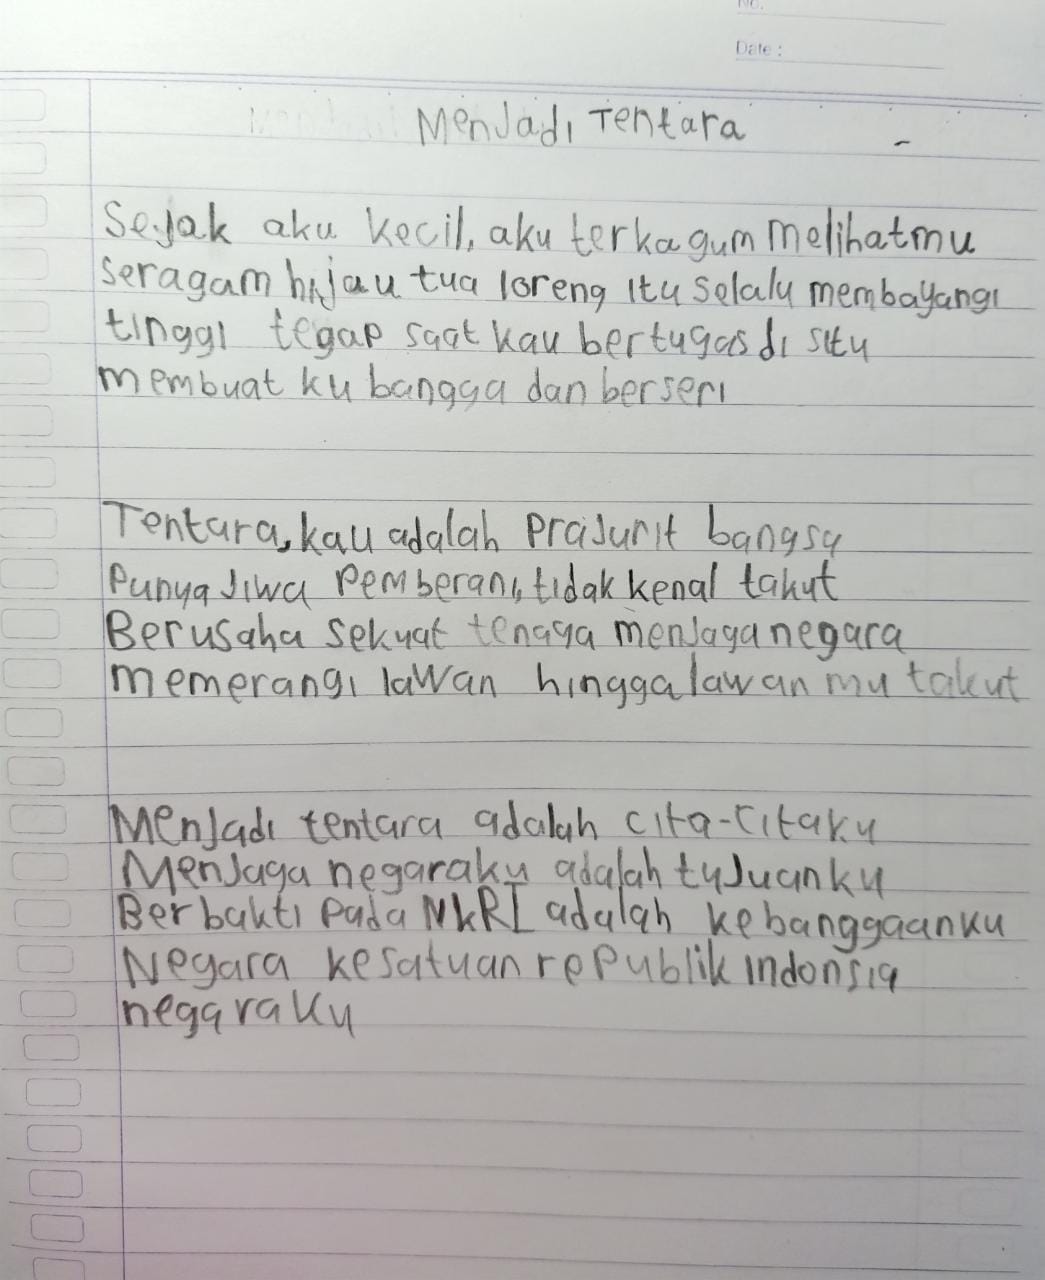 No.
Date :
Menjadi Tentara
Sejak aku kecil, aku terkagum melihatmu
seragam hijau tua loreng itu selalu membayangi
tinggi tegap saat kau bertugas di situ
membuat ku bangga dan berseri
Tentara, kau adalah prajurit bangsa
Punya jiwa pemberani, tidak kenal takut
Berusaha sekuat tenaga menjaga negara
memerangi lawan hingga lawan mu takut
Menjadi tentara adalah cita-citaku
Menjaga negaraku adalah tujuanku
Berbakti pada NKRI adalah kebanggaanku
Negara kesatuan republik indonsia
negaraku